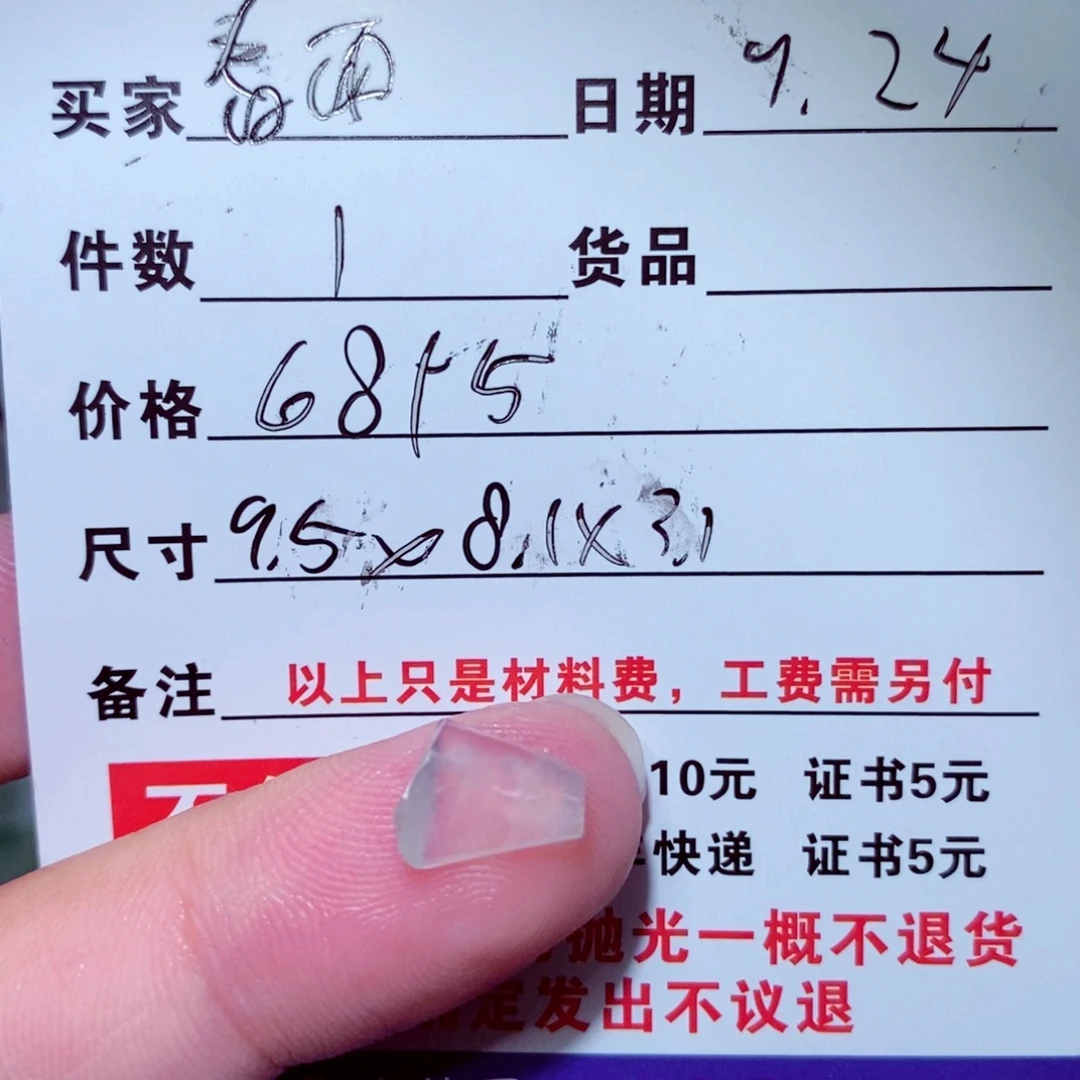 买家 春雨 日期 9.24
件数 1 货品
价格 68+5
尺寸 9.5x8.1x3.1
备注 以上只是材料费，工费需另付
10元 证书5元
快递 证书5元
抛光一概不退货
定发出不议退